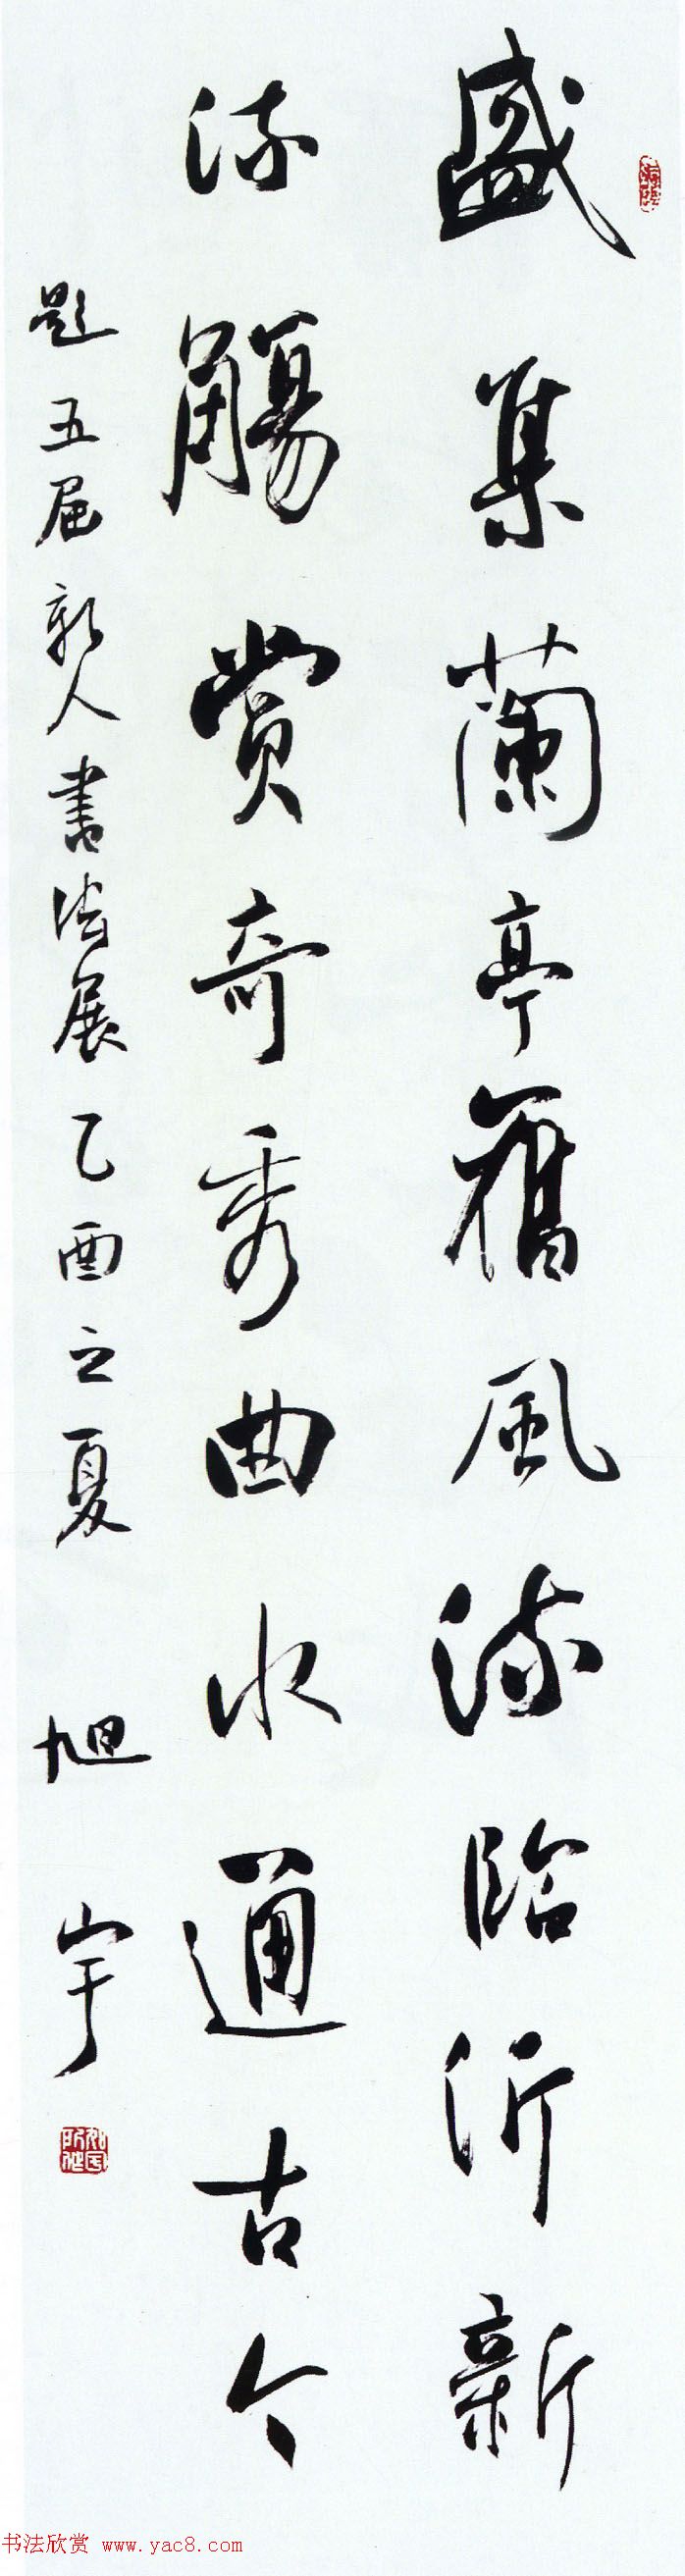 盛集蘭亭舊風流臨沂新
流觴賞奇秀曲水通古今
題五屆新人書法展乙酉之夏 旭宇
书法欣赏 www.yac8.com